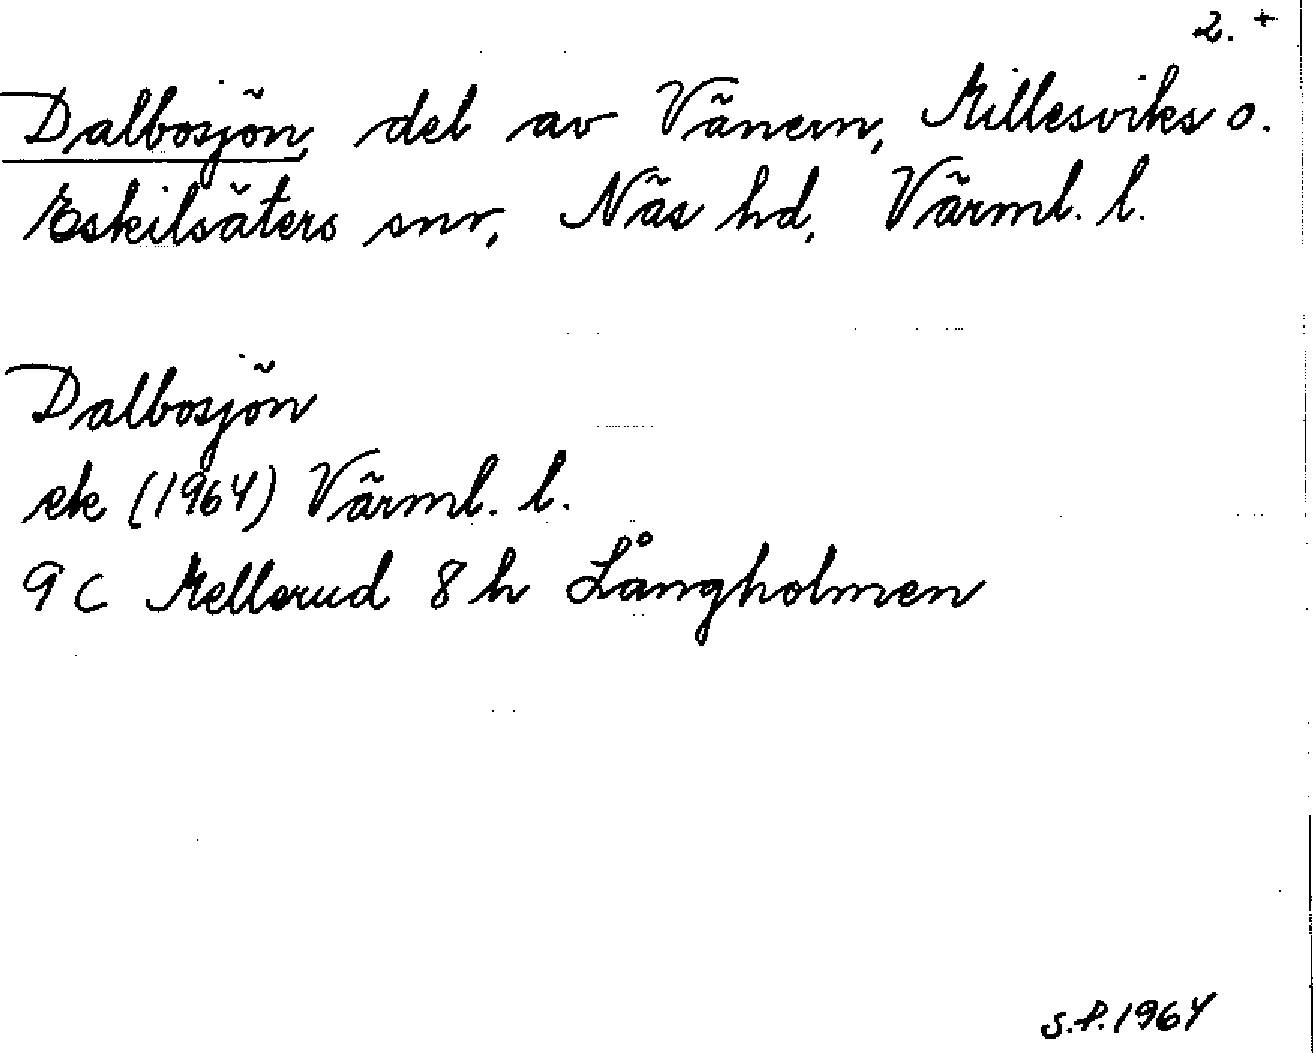 2. +
Dalbosjön, del av Vänern, Millesviks o.
Eskilsäters snr, Näs hd, Värml. l.
Dalbosjön
ek (1964) Värml. l.
9 C Mellerud 8 h Långholmen
S.P. 1964